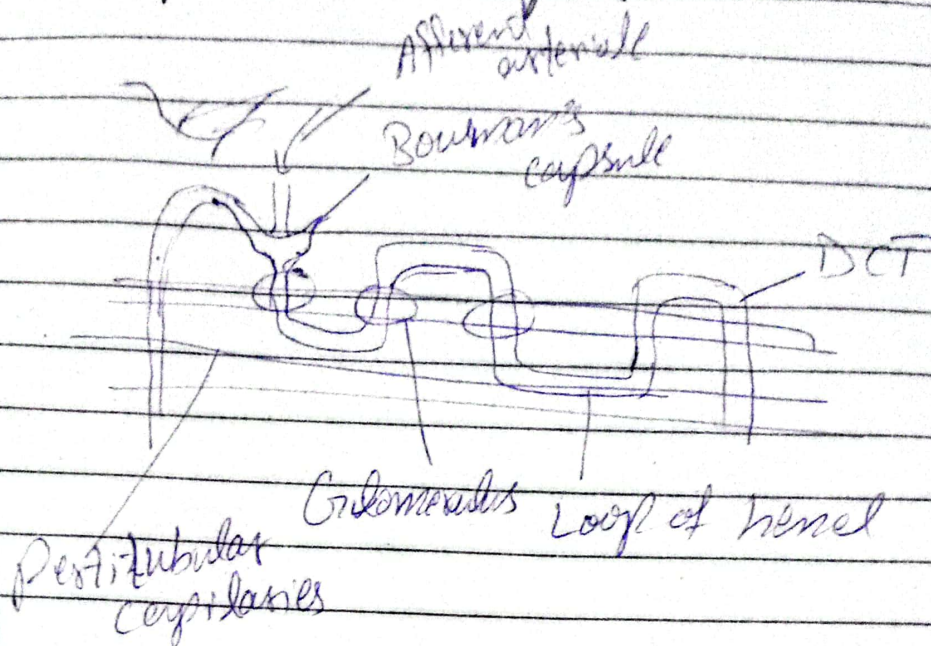 Afferent
arteriole
Bowman's
capsule
DCT
Gulomerulus
Loop of hensel
Peritubular
capilaries